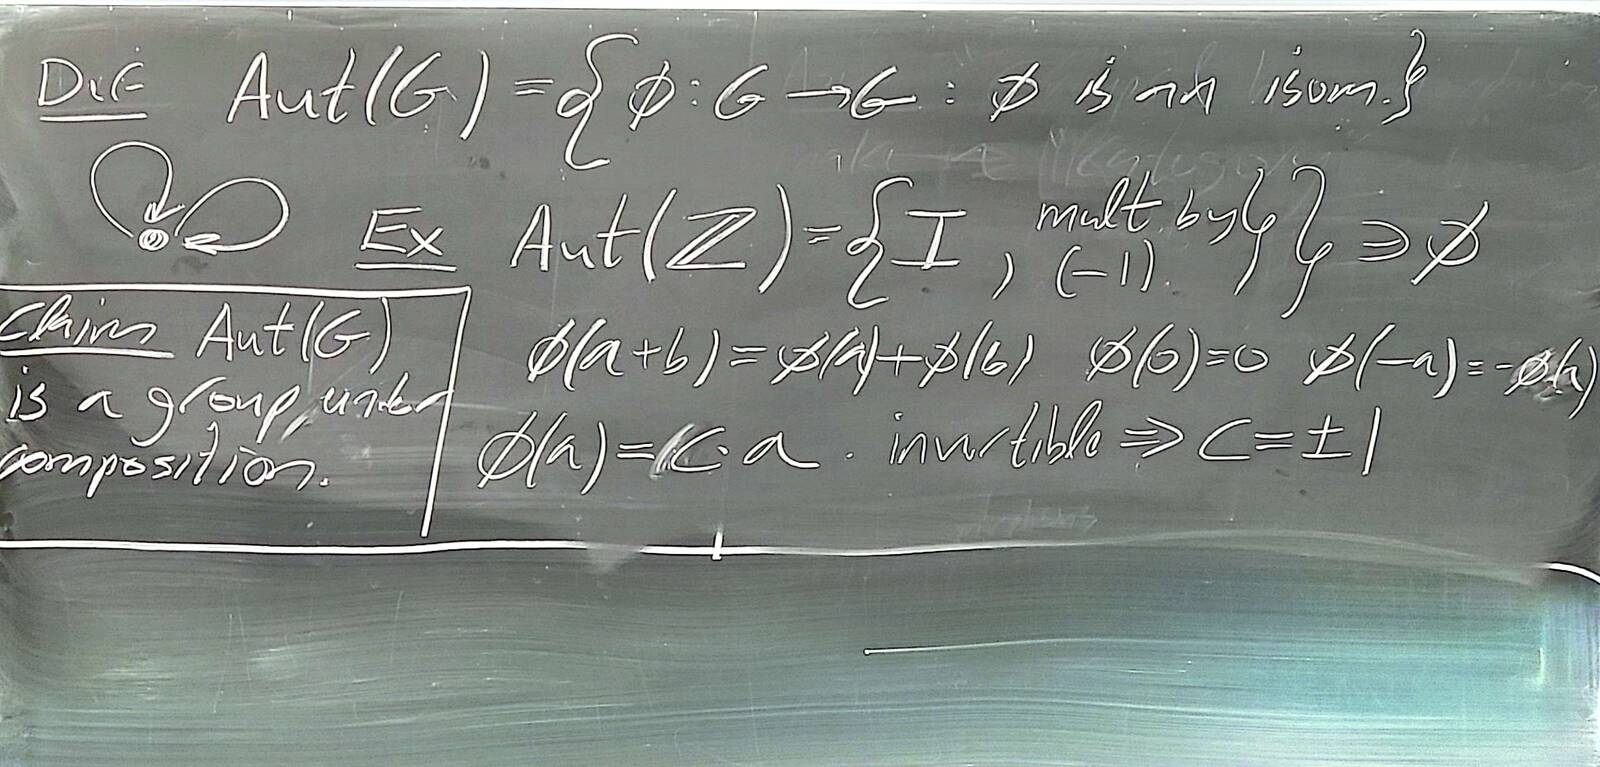 Def Aut(G) = {ϕ: G → G : ϕ is an isom.}
Ex Aut(ℤ) = {I, mult. by (-1).} ∋ ϕ
Claim Aut(G)
is a group under
composition.
ϕ(a+b) = ϕ(a)+ϕ(b) ϕ(0)=0 ϕ(-a)=-ϕ(a)
ϕ(a) = c·a. invertible ⇒ c = ±1